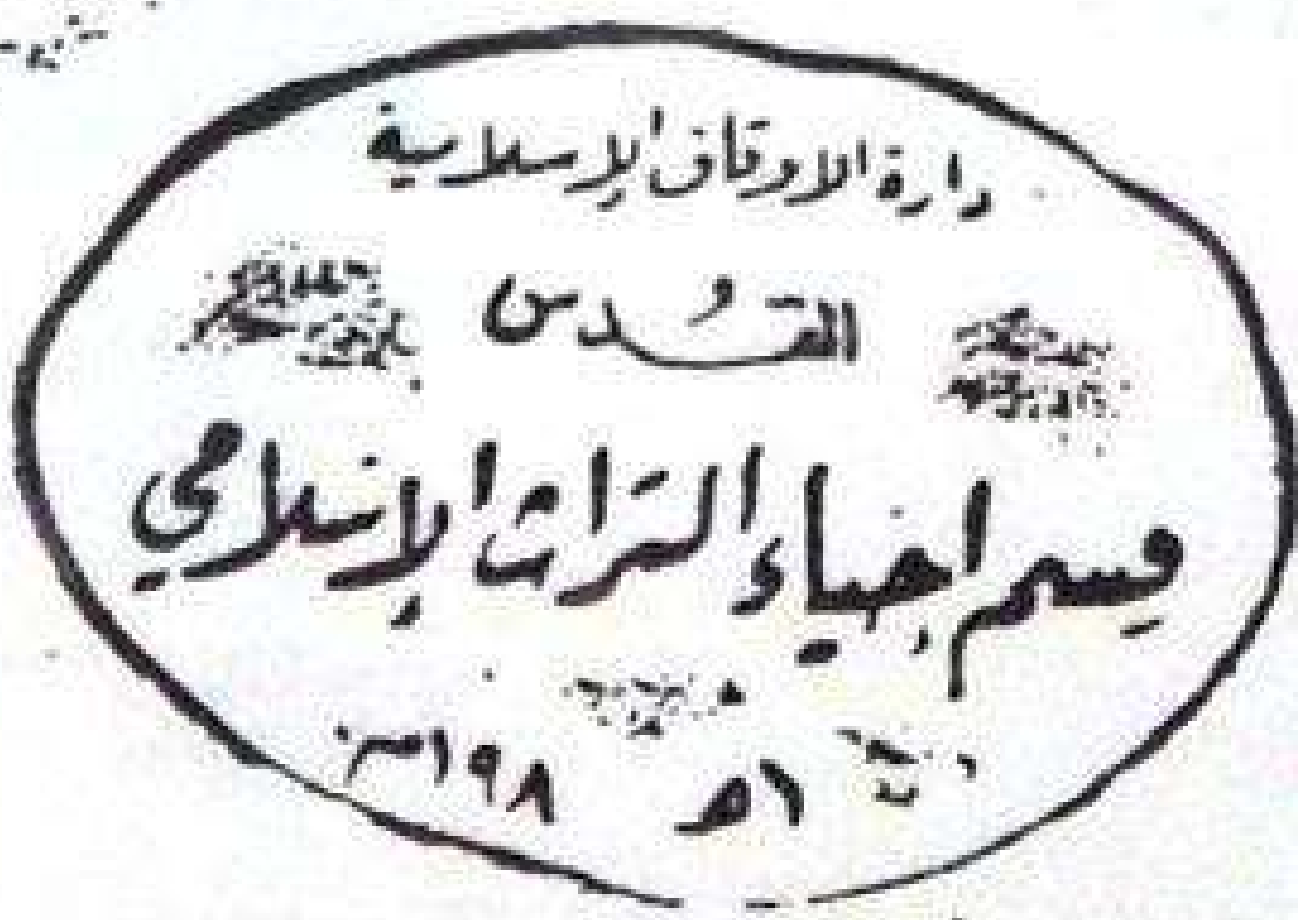 دارة الاوقاف الإسلامية
القدس
قسم إحياء التراث الإسلامي